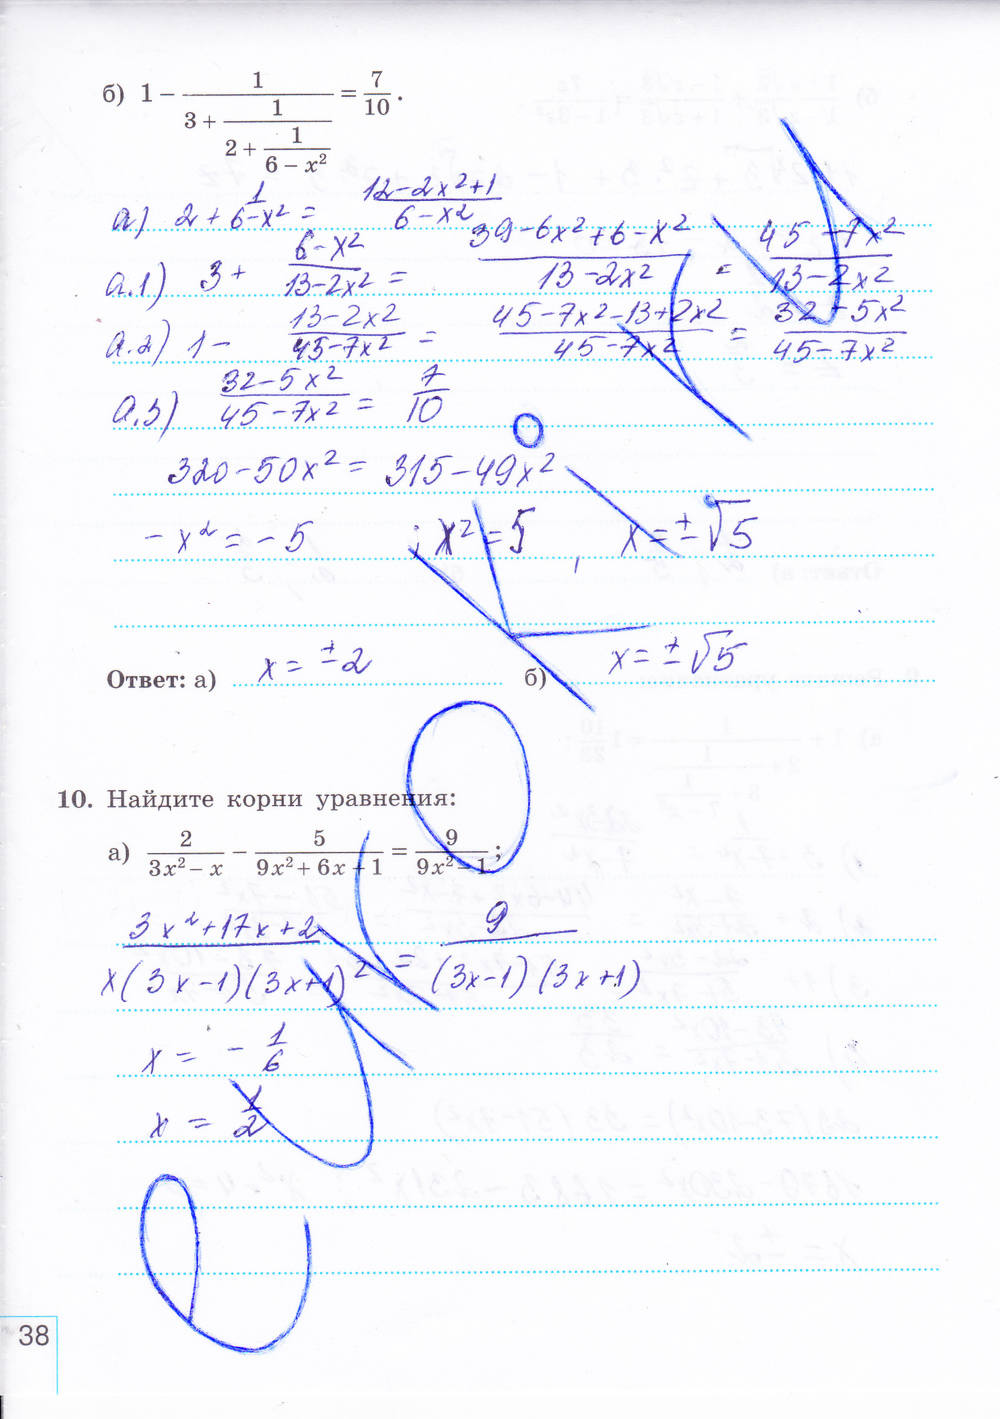 б) 1 − 1/(3 + 1/(2 + 1/(6 − x²))) = 7/10.
а) 2 + 1/(6−x²) = (12−2x²+1)/(6−x2)
а.1) 3 + (6−x²)/(13−2x²) = (39−6x²+6−x²)/(13−2x²) = (45−7x²)/(13−2x²)
а.2) 1 − (13−2x²)/(45−7x²) = (45−7x²−13+2x²)/(45−7x²) = (32−5x²)/(45−7x²)
а.3) (32−5x²)/(45−7x²) = 7/10
320−50x² = 315−49x²
−x² = −5 ; x² = 5, x = ±√5
Ответ: а) x = ±2 б) x = ±√5
10. Найдите корни уравнения:
а) 2/(3x² − x) − 5/(9x² + 6x + 1) = 9/(9x² − 1);
(3x²+17x+2)/(x(3x−1)(3x+1)²) = 9/((3x−1)(3x+1))
x = −1/6
x = 1/2
38